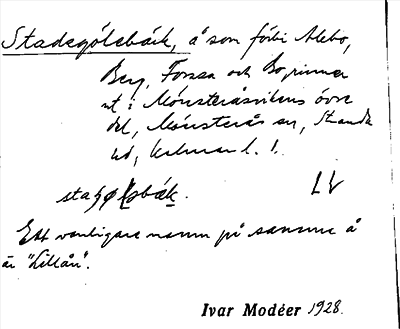 Stadsgölsbäck, å som förbi Alebo,
Berg, Forsa och Boginner
ut i Mönsteråsvikens övre
del, Mönsterås sn, Stranda
hd, Kalmar l. 1.
LV
Ett vanligare namn på samma å
är "Lillån".
Ivar Modéer 1928.